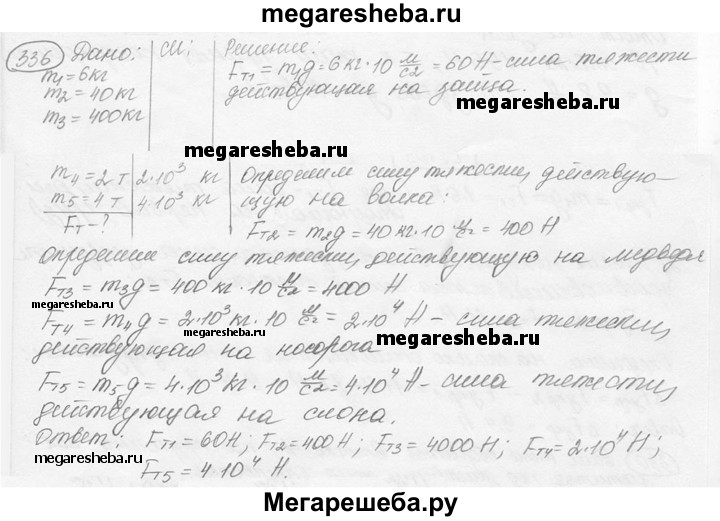 megaresheba.ru
336 Дано: СИ: Решение:
m1 = 6 кг
m2 = 40 кг
m3 = 400 кг
Fт1 = m1g = 6 кг · 10 м/с2 = 60 Н - сила тяжести
действующая на зайца.
megaresheba.ru
megaresheba.ru
m4 = 2 т 2·10³ кг
m5 = 4 т 4·10³ кг
Fт - ?
Определим силу тяжести, действую-
щую на волка:
Fт2 = m2g = 40 кг · 10 м/с2 = 400 Н
Определим силу тяжести, действующую на медведя
Fт3 = m3g = 400 кг · 10 м/с2 = 4000 Н
megaresheba.ru
Fт4 = m4g = 2·10³ кг · 10 м/с2 = 2·10⁴ Н - сила тяжести,
megaresheba.ru
действующая на носорога
Fт5 = m5g = 4·10³ кг · 10 м/с2 = 4·10⁴ Н - сила тяжести,
действующая на слона.
Ответ: Fт1 = 60 Н; Fт2 = 400 Н; Fт3 = 4000 Н; Fт4 = 2·10⁴ Н;
megaresheba.ru
Fт5 = 4·10⁴ Н.
Мегарешеба.ру